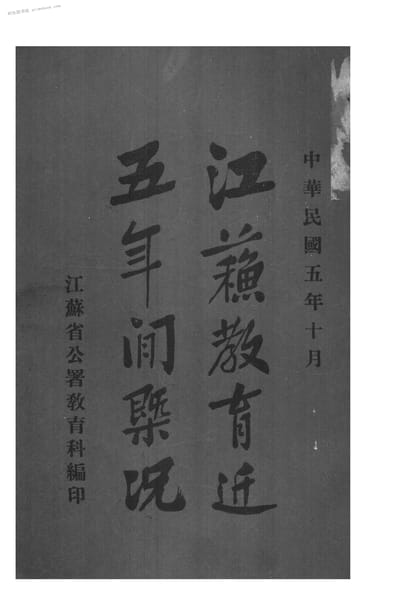 中華民國五年十月
江蘓教育近
五年间槩况
江蘇省公署敎育科編印